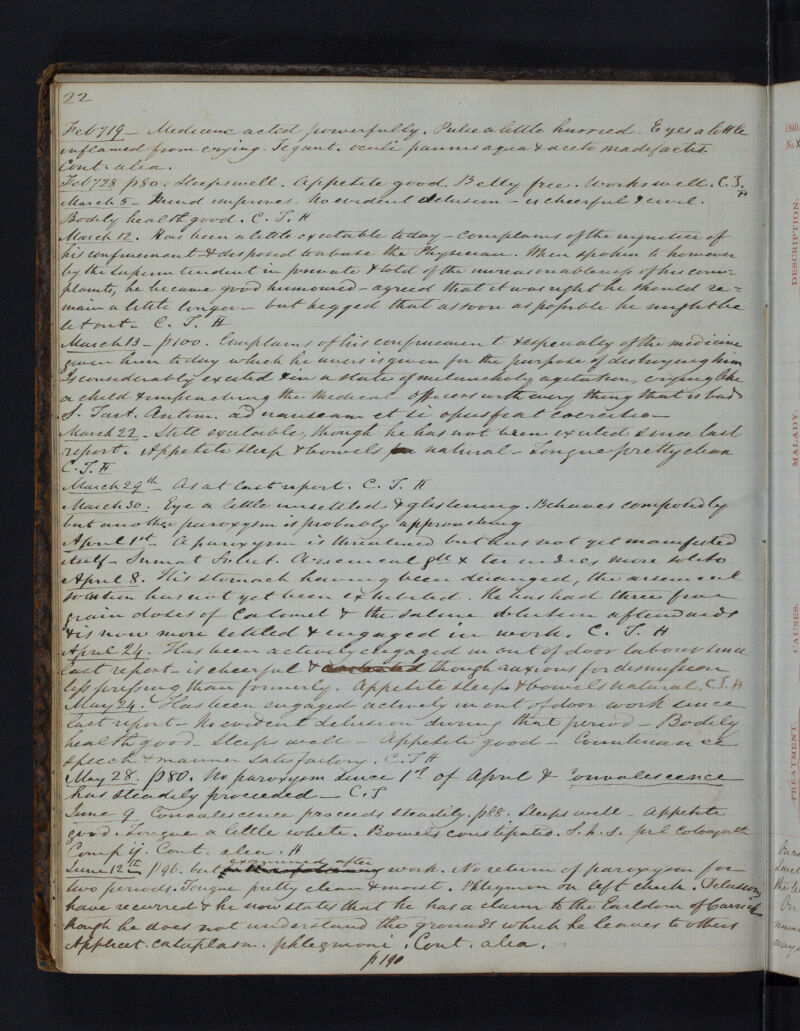 22
Feby 19 - Medicine acted powerfully. Pulse a little hurried. Eyes a little
inflamed from crying. Tegant. oculi pannis aqua & aceto madefactis.
Cont. alia.
Feby 28 p80. Sleeps well. Appetite good. Belly free. Works well. C.T.
H
March 5 - Mind improves. No evident delusion - is cheerful & civil.
Bodily health good. C. T. H
March 12. Has been a little excitable today - Complains of the injustice of
his confinement & disposed to abuse the Physician. When spoken to however
by the Superintendent in private & told of the unreasonableness of his com=
plaints, he became good humoured - agreed that it was right he should re=
main a little longer - but begged that as soon as possible he might be
let out - C. T. H
March 13 - p100. Complains of his confinement & especially of the medicine
given him today which he avers is given for the purpose of destroying him
Is considerably excited & in a state of melancholy agitation, crying like
a child & impeaching the Medical Officers with every thing that is bad
S. Tart. Antim. ad nauseam et si opus fiat coercitio -
March 22 - Still excitable, though he has not been excited since last
report. Appetite sleep & bowels natural - Tongue pretty clean
C. T. H
March 29th As at last report. C. T. H
March 30. Eye a little unsettled & glistening. Behaves composedly
but another paroxysm is probably approaching
April 1st. A paroxysm is threatened but has not yet manifested
itself - Sumat Solut. Arsenical gtt x ter indies more solito
April 8. His stomach having been deranged, the arsenical
solution has not yet been exhibited. He has had three five
grain doses of Calomel & the saline solution afterwards
& is now more settled & engaged in work. C. T. H
April 24. Has been actively engaged in out of door labour since
last report - is cheerful & though anxious for dismission
less pressing than formerly. Appetite sleep & bowels natural. C.T. H
May 24. Has been engaged actively in out of door work since
last report - No evident delusion during that period - Bodily
health good - Sleeps well - Appetite good - Countenance
speech & manner satisfactory. C.T H
May 28. p80. No paroxysm since 1st of April & Convalescence
has steadily proceeded - C.T
June 9 Convalescence proceeds steadily. p88. Sleeps well - Appetite
good. Tongue a little white. Bowels constipated. S. h. s. pil Colocynth
Comp ij. Cont. alia. H
June 12th p96. but examined after work. No return of paroxysm for
two periods. Tongue pretty clean & moist. Phlegmon on left cheek. Delusions
have recurred & he now states that he has a claim to the Earldom of Carrick
though he does not understand the grounds which he leaves to others
Applicet. cataplasm. phlegmoni. Cont. alia.
p190
1840
No.
DESCRIPTION.
MALADY.
CAUSES.
TREATMENT.